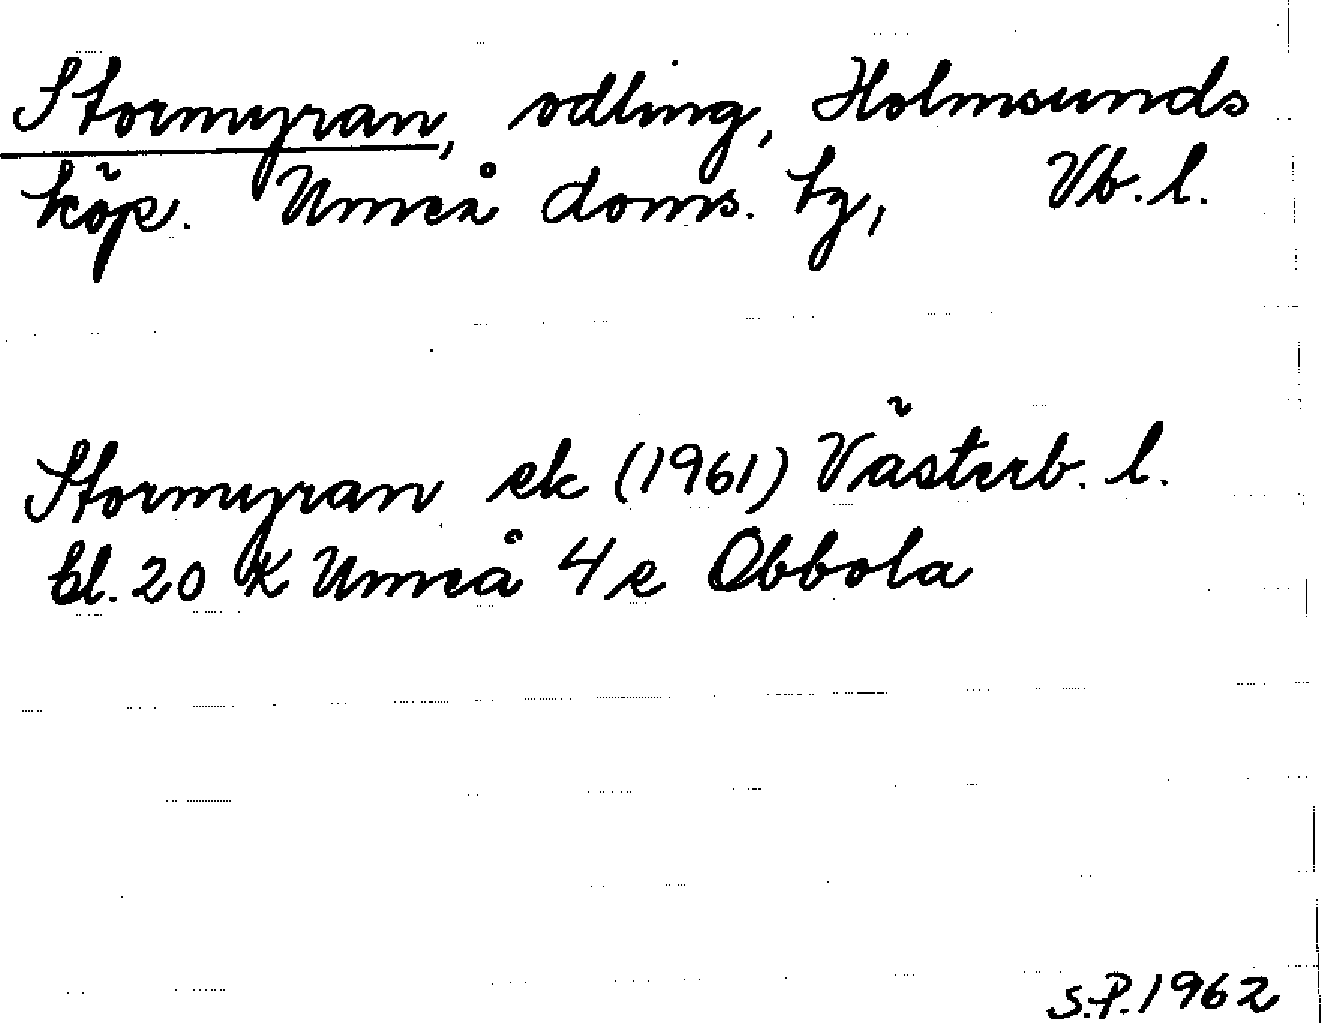 Stormyran, odling, Holmsunds
köp. Umeå doms. tg, Vb. l.
Stormyran ek (1961) Västerb. l.
bl. 20 K Umeå 4 e Obbola
S.P. 1962